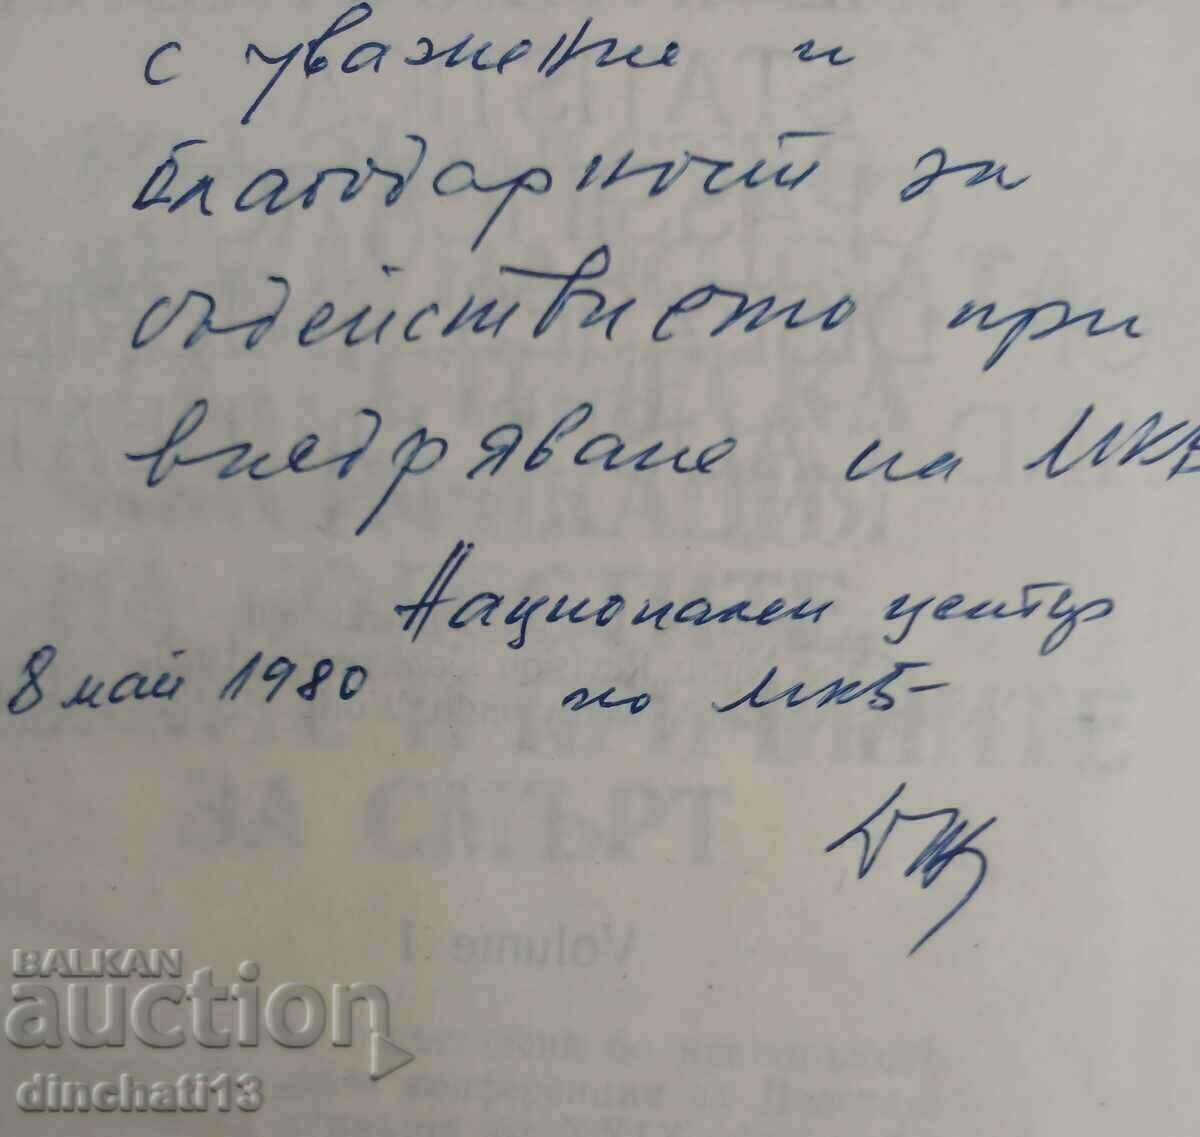 с уважение и
благодарност за
съдействието при
внедряване на МКБ
Национален център
8 май 1980 по МКБ-
ЗА СМЪРТ
Volume 1
BALKAN
auction
dinchati13